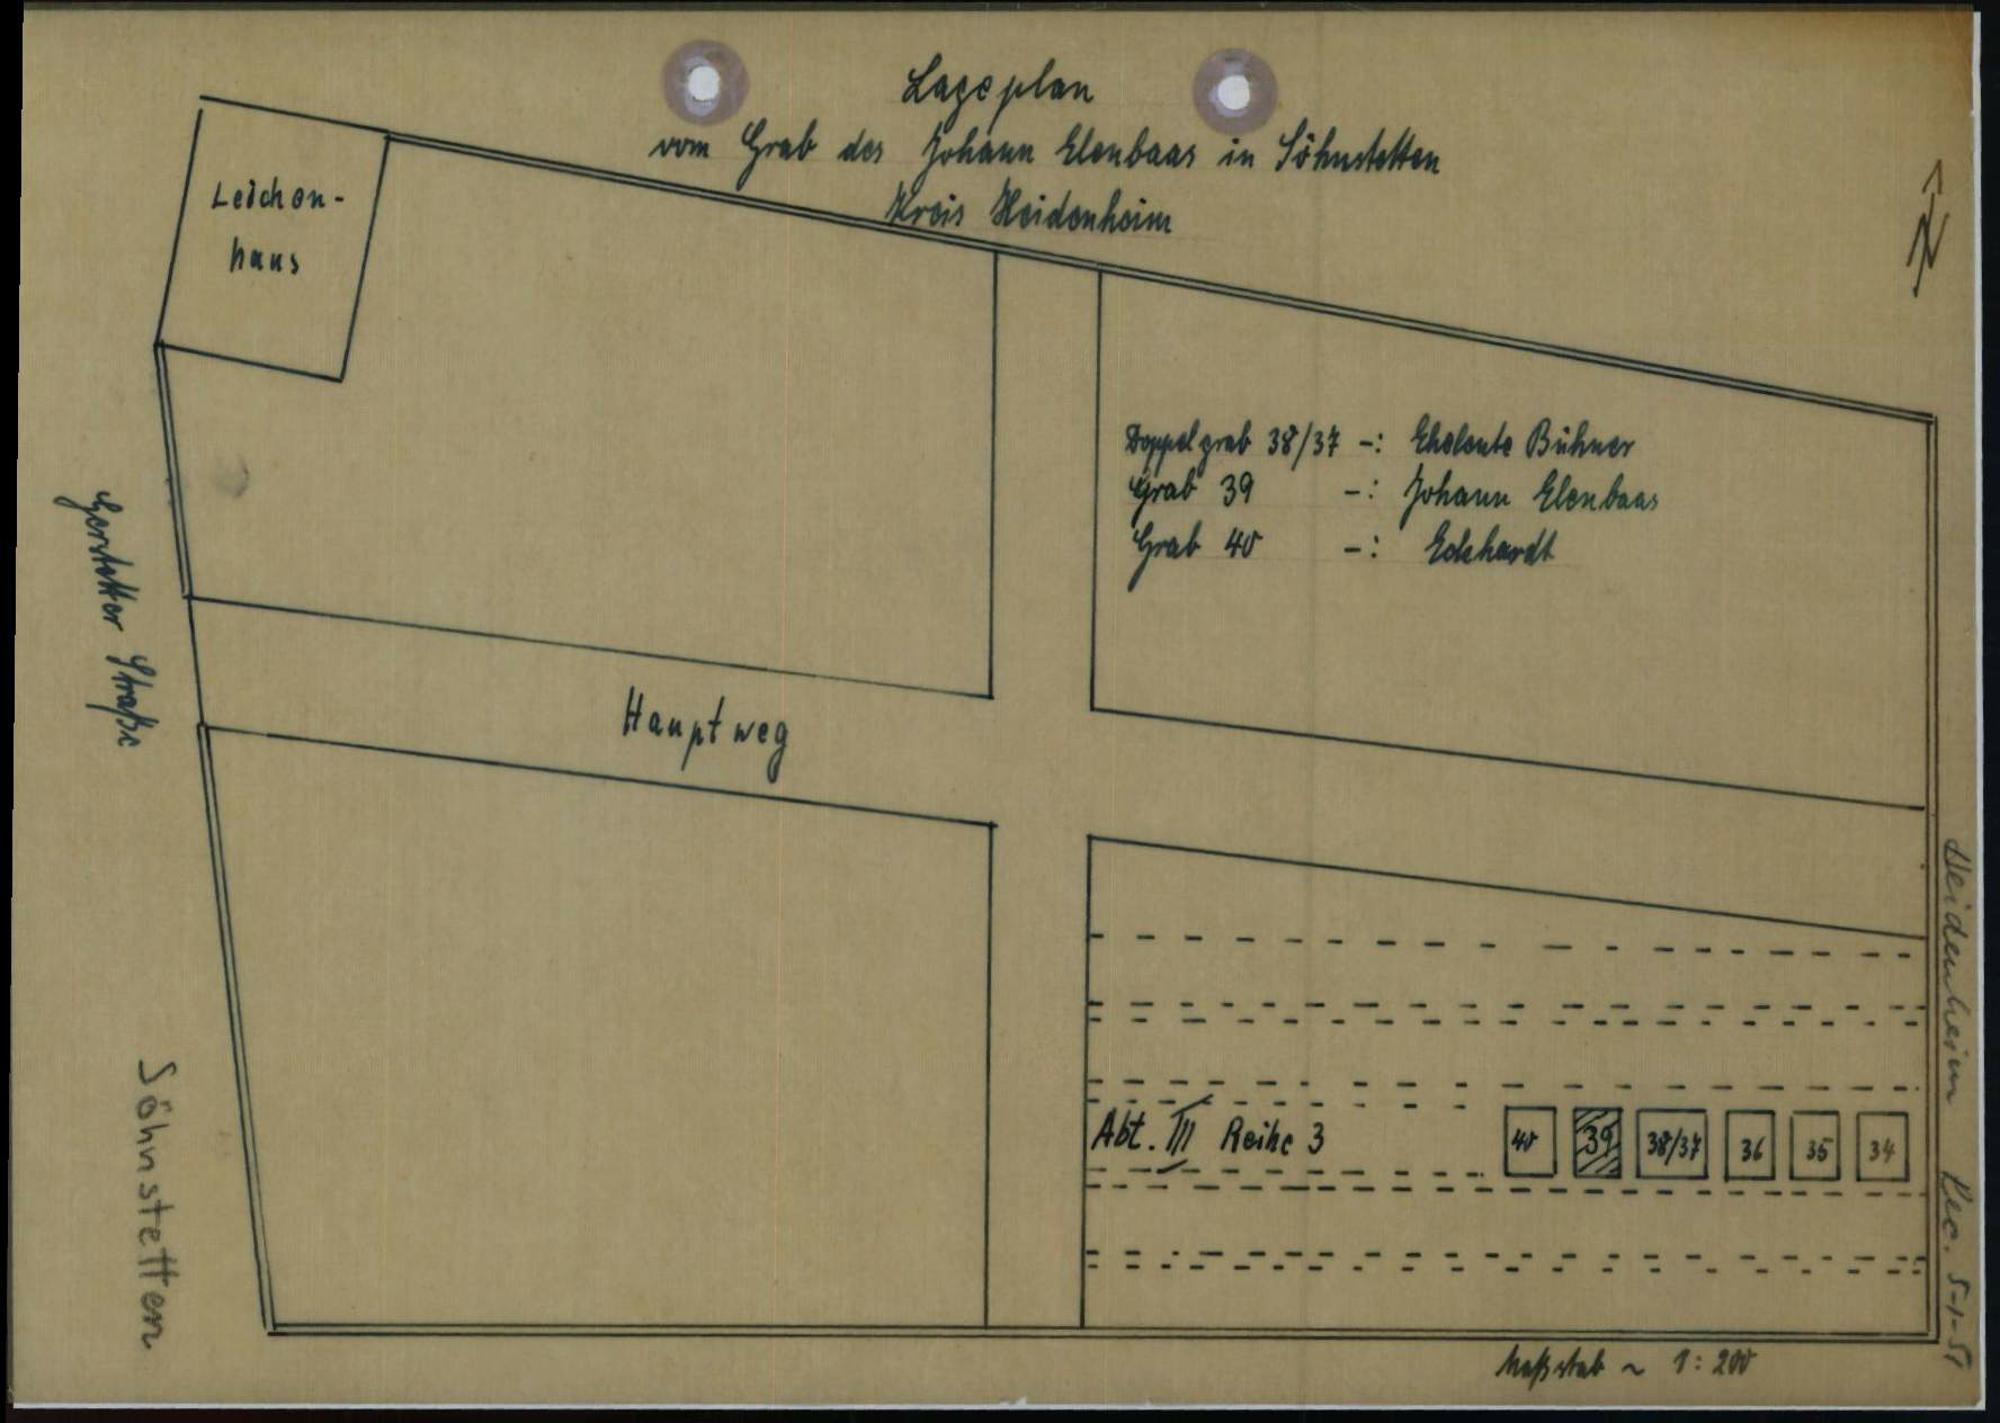 Lageplan
vom Grab des Johann Elenbaas in Söhnstetten
Kreis Heidenheim
N
Leichen-
haus
Doppelgrab 38/37 -: Eheleute Bühner
Grab 39 -: Johann Elenbaas
Grab 40 -: Eckhardt
Gerstetter Straße
Hauptweg
Abt. III Reihe 3
40 39 38/37 36 35 34
Söhnstetten
Heidenheim Rec. 5-1-51
Maßstab ~ 1:200